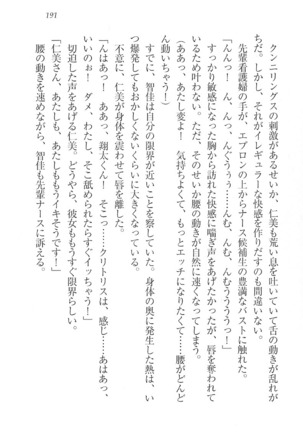 191
クンニリングスの刺激があるせいか、仁美も荒い息を吐いていて舌の動きが乱れが
ちだ。しかし、それがイレギュラーな快感を作りだすのも間違いない。
先輩看護婦の手が、エプロンの上からナース候補生の豊満なバストに触れた。
「んんっ！　んんっ、んっ、んっ、んぐぅぅっ……んむ、んむぅぅぅぅっ！」
すっかり敏感になった胸から訪れた快感に喘ぎ声をあげたかったが、唇を奪われて
いるため叶わない。ただ、そのせいか腰の動きが自然に速くなってしまう。
（ああっ、あたし変よ！　気持ちよくて、もっとエッチになりたくて……腰がどんど
ん動いちゃう！）
すでに、智佳は自分の限界が近いことを察していた。身体の奥に発生した熱は、い
つ爆発してもおかしくないくらいに大きくなっている。
不意に、仁美が身体を震わせて唇を離した。
「んはあっ！　あああっ、翔太くん！　クリトリスは、感じ……あはあっ、
いいのぉ！　ダメ、わたし、そこ舐められたらすぐイッちゃう！」
切迫した声をあげる仁美。どうやら、彼女ももうすぐ限界らしい。
「仁美さん、あたしも、あたしももうイキそうです！」
腰の動きを速めながら、智佳も先輩ナースに訴える。